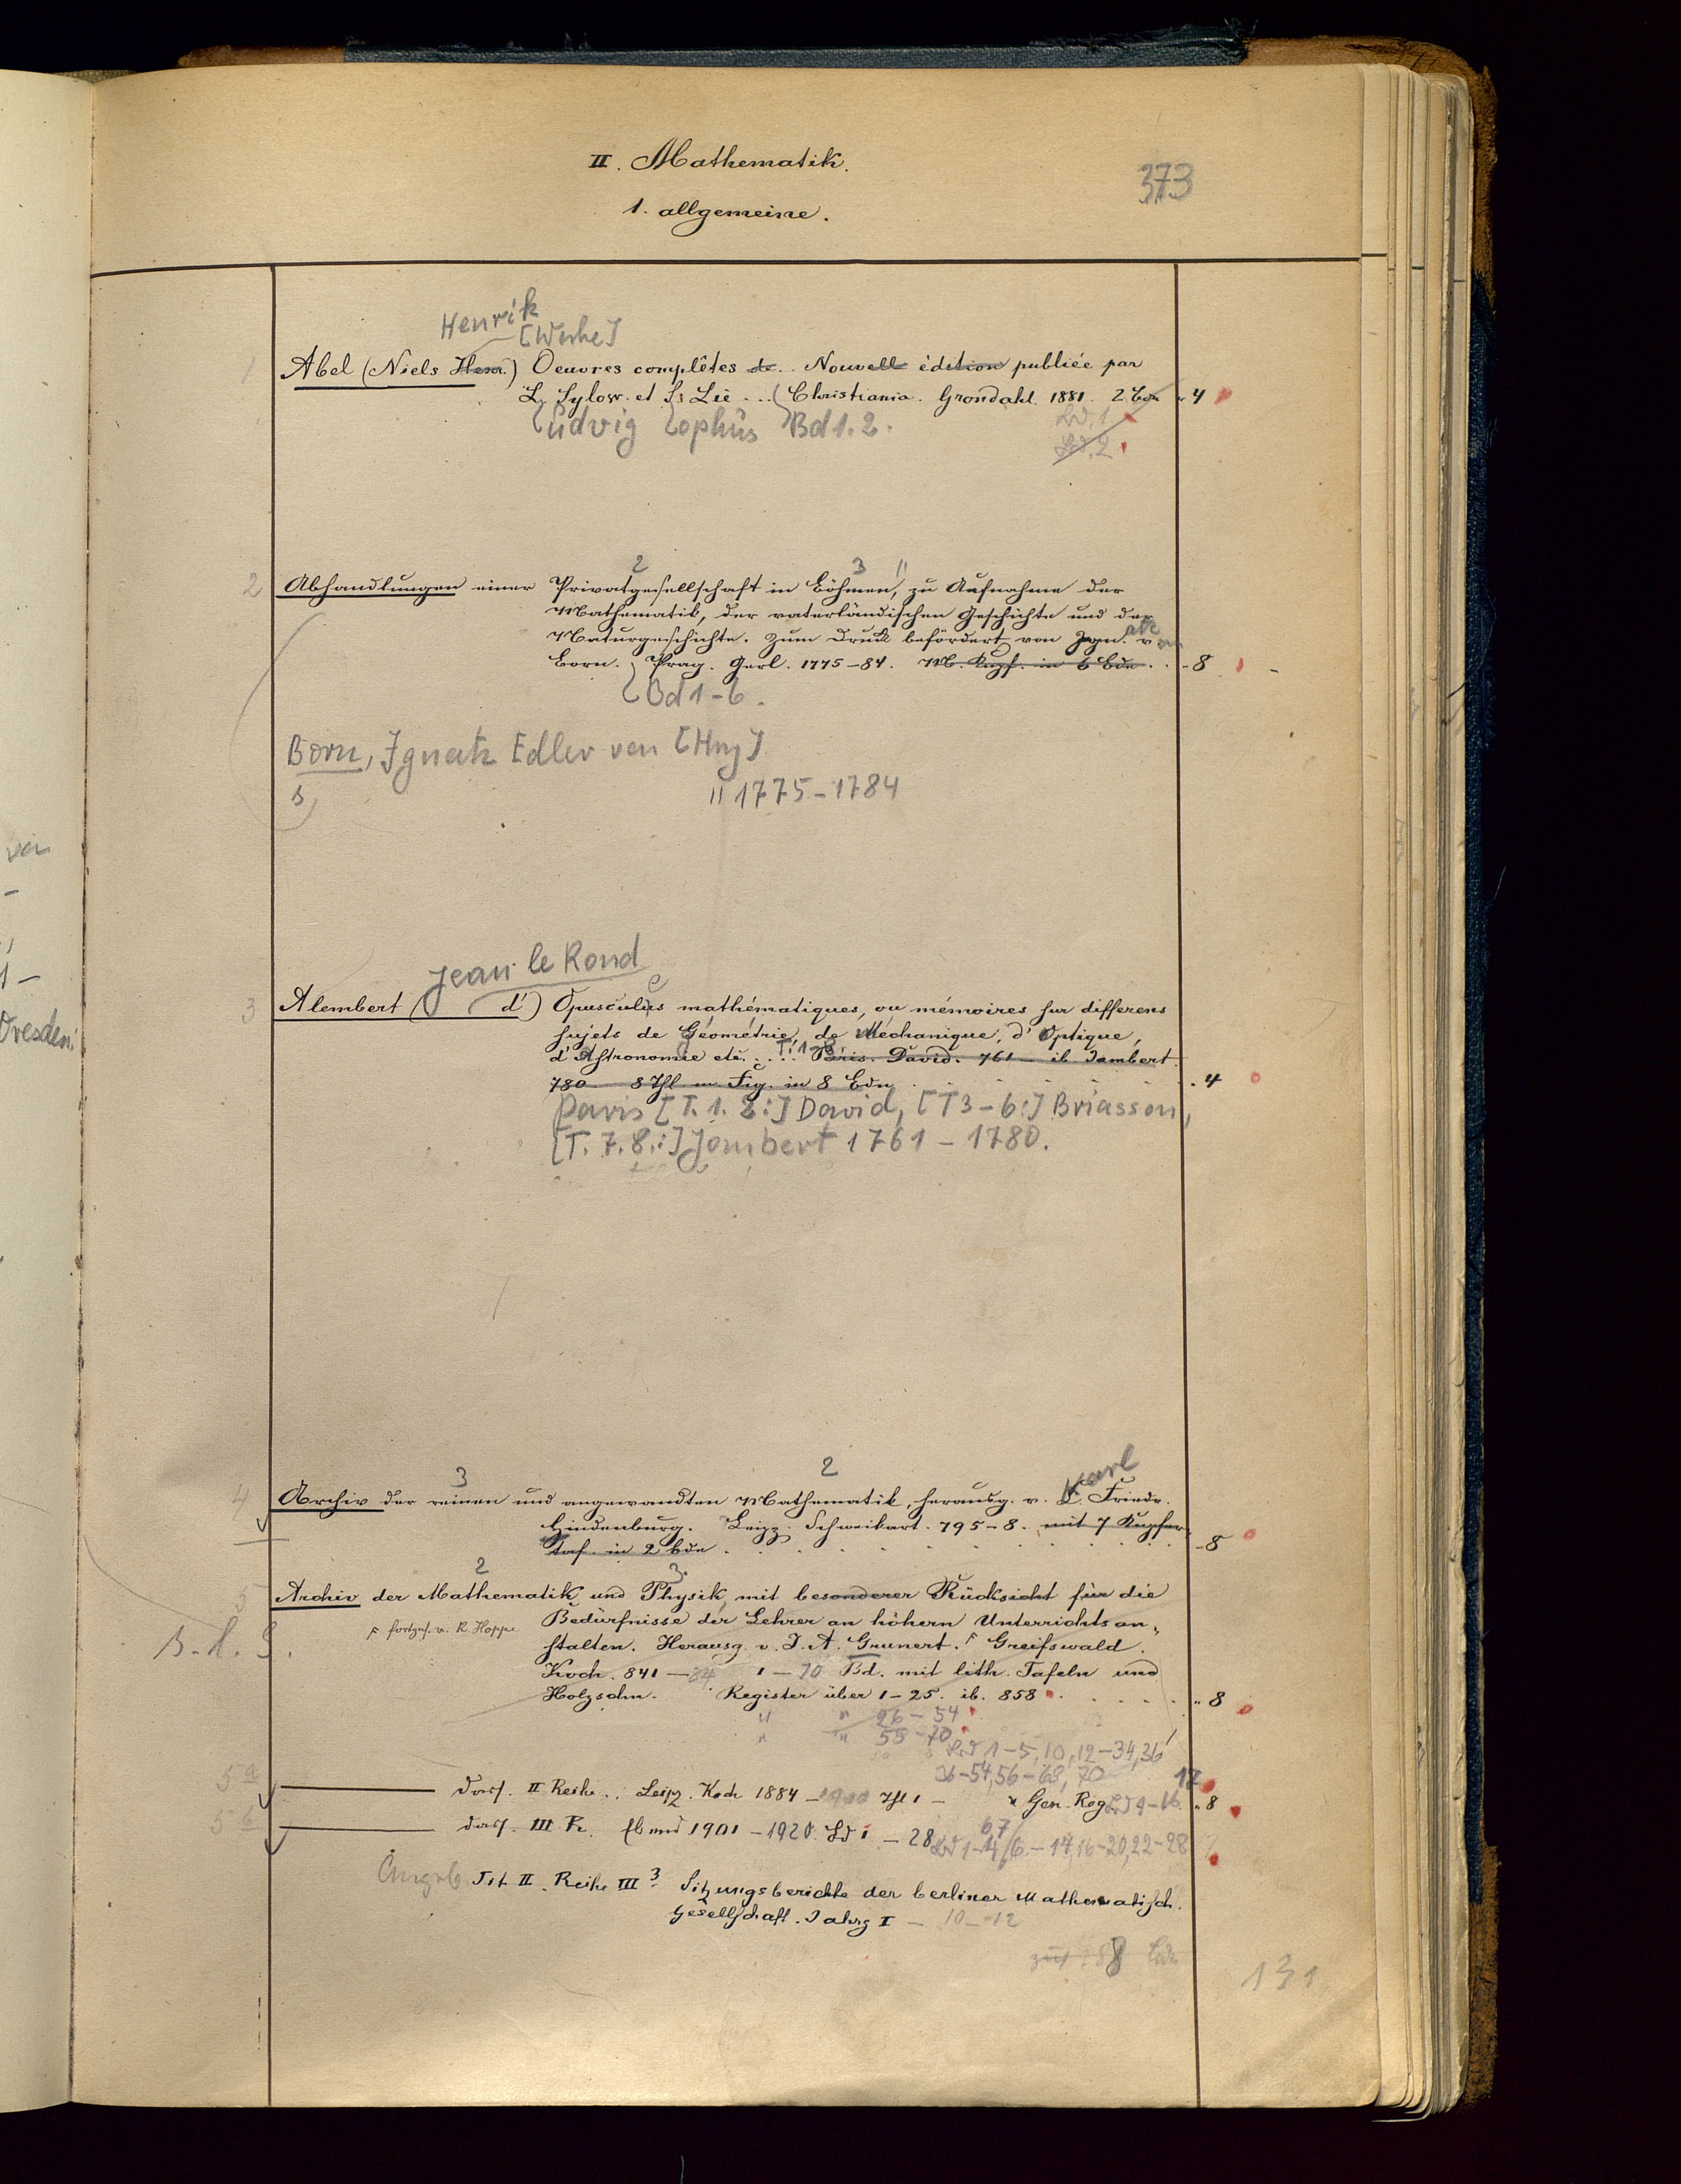 II. Mathematik.
373
1. allgemeine.
Henrik
[Werke]
1 Abel (Niels Henr.) Oeuvres complêtes de.. Nouvelle édition publiée par
L. Sylow. et S. Lie ... Christiania. Grondahl. 1881. 2 Bde 4
Ludvig Sophus Bd 1.2.
Bd. 1
Bd. 2
2 3 "
2 Abhandlungen einer Privatgesellschaft in Böhmen, zu Aufnahme der
Mathematik, der vaterländischen Geschichte und der
Naturgeschichte. Zum Druck befördert von Ign. v.
Born. Prag. Gerl. 1775-84. M. Kupf. in 6 Bdn. 8
Bd 1-6.
Born, Ignatz Edler von [Hrsg]
s
" 1775-1784
Jean le Rond
e
3 Alembert ( d') Opusculus mathématiques, ou mémoires sur differens
sujets de Géométrie, de Mechanique, d'Optique,
d'Astronomie etc. ... T. 1-8 Paris. David. 761 - ib Jambert
780. 8 Thl m. Fig. in 8 Bdn 4
Paris [T. 1. 2:] David, [T 3-6:] Briasson,
[T. 7. 8.:] Jombert 1761 - 1780.
3 2 Karl
4 Archiv der reinen und angewandten Mathematik, herausg. v. C. Friedr.
Hindenburg. Leipz. Schweikart. 795-8. mit 7 Kupfer-
taf. in 2 Bdn 8
2 3.
5 Archiv der Mathematik und Physik mit besonderer Rücksicht für die
Bedürfnisse der Lehrer an höhern Unterrichtsan-
fortges. v. R. Hoppe
stalten. Herausg. v. J. A. Grunert. Greifswald.
Koch. 841 - 84 1 - 70 Bd. mit lith. Tafeln und
Holzschn. Register über 1-25. ib. 858 8
" " 26 - 54
" " 55 - 70
Bd 1-5, 10, 12-34, 36
36-54, 56-68, 70
17
5a dass. II Reihe.. Leipz. Koch 1884 - 1900 Thl 1 - u Gen. Reg 8
5b dass. III R. Ebend 1901 - 1920. Bd 1 - 28
67
Bd 1-4, 6-14, 16-20, 22-28
Angeb. Tit II. Reihe III 3 Sitzungsberichte der berliner Mathematisch.
Gesellschaft. Jahrg I - 10 - 12
88 Bde
131